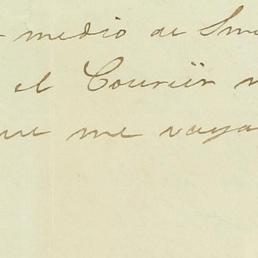 medio de
el Couriër
que me vaya